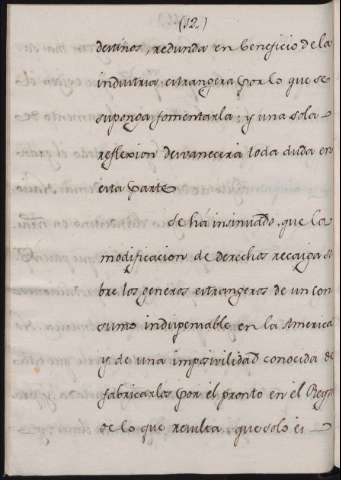 (12.)
destinos, redunda en beneficio de la
industria estrangera por lo que se
suponga fomentarla; y una sola
reflexion desvanecerá toda duda en
esta parte
Se ha insinuado que la
modificacion de derechos recaiga so
bre los generos estrangeros de un con
sumo indispensable en la America
y de una imposivilidad conocida de
fabricarlos por el pronto en el Reyno
de lo que resulta que solo es